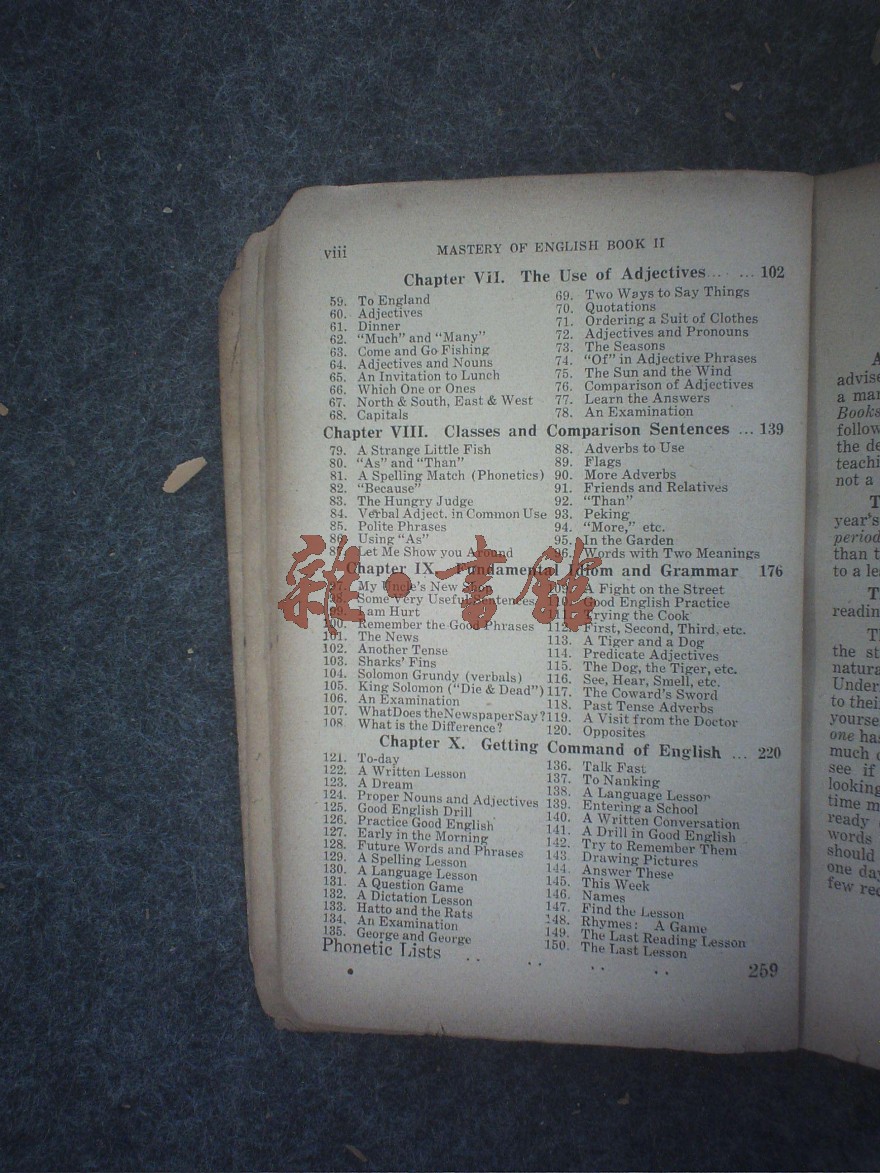 viii MASTERY OF ENGLISH BOOK II
Chapter VII. The Use of Adjectives... ... 102
59. To England
60. Adjectives
61. Dinner
62. "Much" and "Many"
63. Come and Go Fishing
64. Adjectives and Nouns
65. An Invitation to Lunch
66. Which One or Ones
67. North & South, East & West
68. Capitals
69. Two Ways to Say Things
70. Quotations
71. Ordering a Suit of Clothes
72. Adjectives and Pronouns
73. The Seasons
74. "Of" in Adjective Phrases
75. The Sun and the Wind
76. Comparison of Adjectives
77. Learn the Answers
78. An Examination
Chapter VIII. Classes and Comparison Sentences ... 139
79. A Strange Little Fish
80. "As" and "Than"
81. A Spelling Match (Phonetics)
82. "Because"
83. The Hungry Judge
84. Verbal Adject. in Common Use
85. Polite Phrases
86. Using "As"
87. Let Me Show you Around
88. Adverbs to Use
89. Flags
90. More Adverbs
91. Friends and Relatives
92. "Than"
93. Peking
94. "More," etc.
95. In the Garden
96. Words with Two Meanings
Chapter IX. Fundamental Idiom and Grammar 176
97. My Uncle's New Shop
98. Some Very Useful Sentences
99. I am Hurt
100. Remember the Good Phrases
101. The News
102. Another Tense
103. Sharks' Fins
104. Solomon Grundy (verbals)
105. King Solomon ("Die & Dead")
106. An Examination
107. What Does the Newspaper Say?
108. What is the Difference?
109. A Fight on the Street
110. Good English Practice
111. Trying the Cook
112. First, Second, Third, etc.
113. A Tiger and a Dog
114. Predicate Adjectives
115. The Dog, the Tiger, etc.
116. See, Hear, Smell, etc.
117. The Coward's Sword
118. Past Tense Adverbs
119. A Visit from the Doctor
120. Opposites
Chapter X. Getting Command of English ... 220
121. To-day
122. A Written Lesson
123. A Dream
124. Proper Nouns and Adjectives
125. Good English Drill
126. Practice Good English
127. Early in the Morning
128. Future Words and Phrases
129. A Spelling Lesson
130. A Language Lesson
131. A Question Game
132. A Dictation Lesson
133. Hatto and the Rats
134. An Examination
135. George and George
136. Talk Fast
137. To Nanking
138. A Language Lesson
139. Entering a School
140. A Written Conversation
141. A Drill in Good English
142. Try to Remember Them
143. Drawing Pictures
144. Answer These
145. This Week
146. Names
147. Find the Lesson
148. Rhymes: A Game
149. The Last Reading Lesson
150. The Last Lesson
Phonetic Lists .. .. .. .. 259
雜·書館
A
advise
a mar
Books
follow
the de
teachi
not a
T
year's
period
than t
to a le
T
readin
T
the st
natura
Under
to thei
yourse
one has
much
see if
looking
time m
ready
words
should
one day
few rec